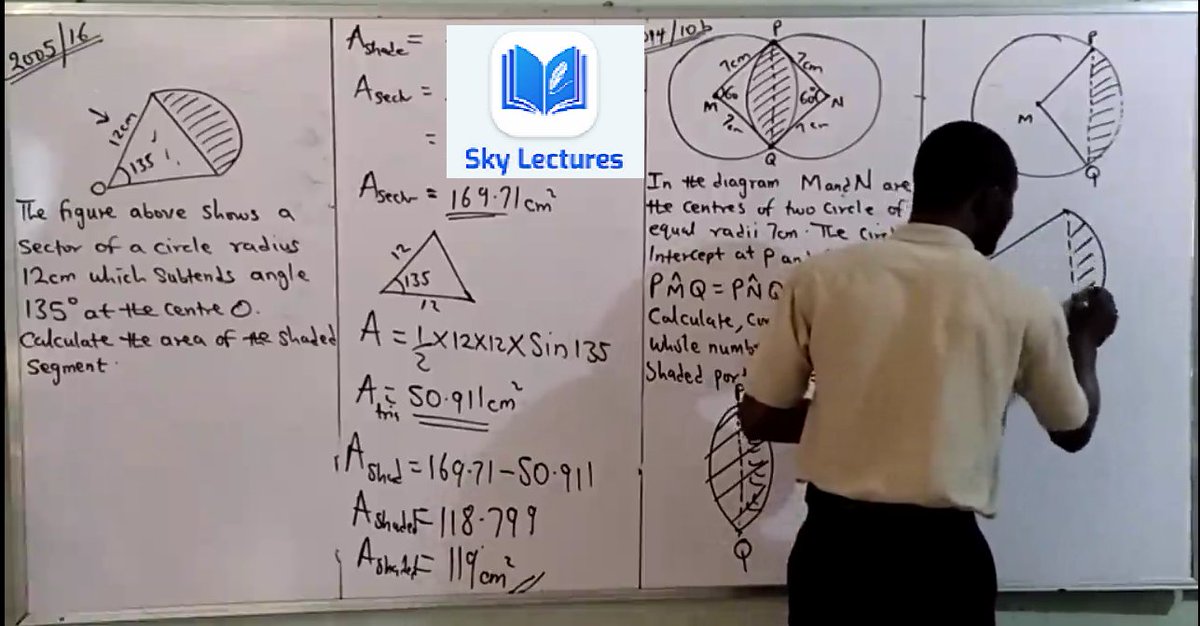 2005/16
12cm
135
O
The figure above shows a
sector of a circle radius
12cm which Subtends angle
135° at the centre O.
Calculate the area of the shaded
Segment.
A shade =
A sect =
=
A sector = 169.71cm²
12
135
12
A = 1/2 X12X12XSin135
A tri = 50.911cm²
A shad = 169.71-50.911
A shaded = 118.799
A shaded = 119cm²
Sky Lectures
94/10b
P
7cm 7cm
M 60 60° N
7cm 7cm
Q
In the diagram M and N are
the centres of two circle of
equal radii 7cm. The
Intercept at P
PM̂Q = PN̂Q
Calculate,
whole
Shaded
P
Q
P
M
Q